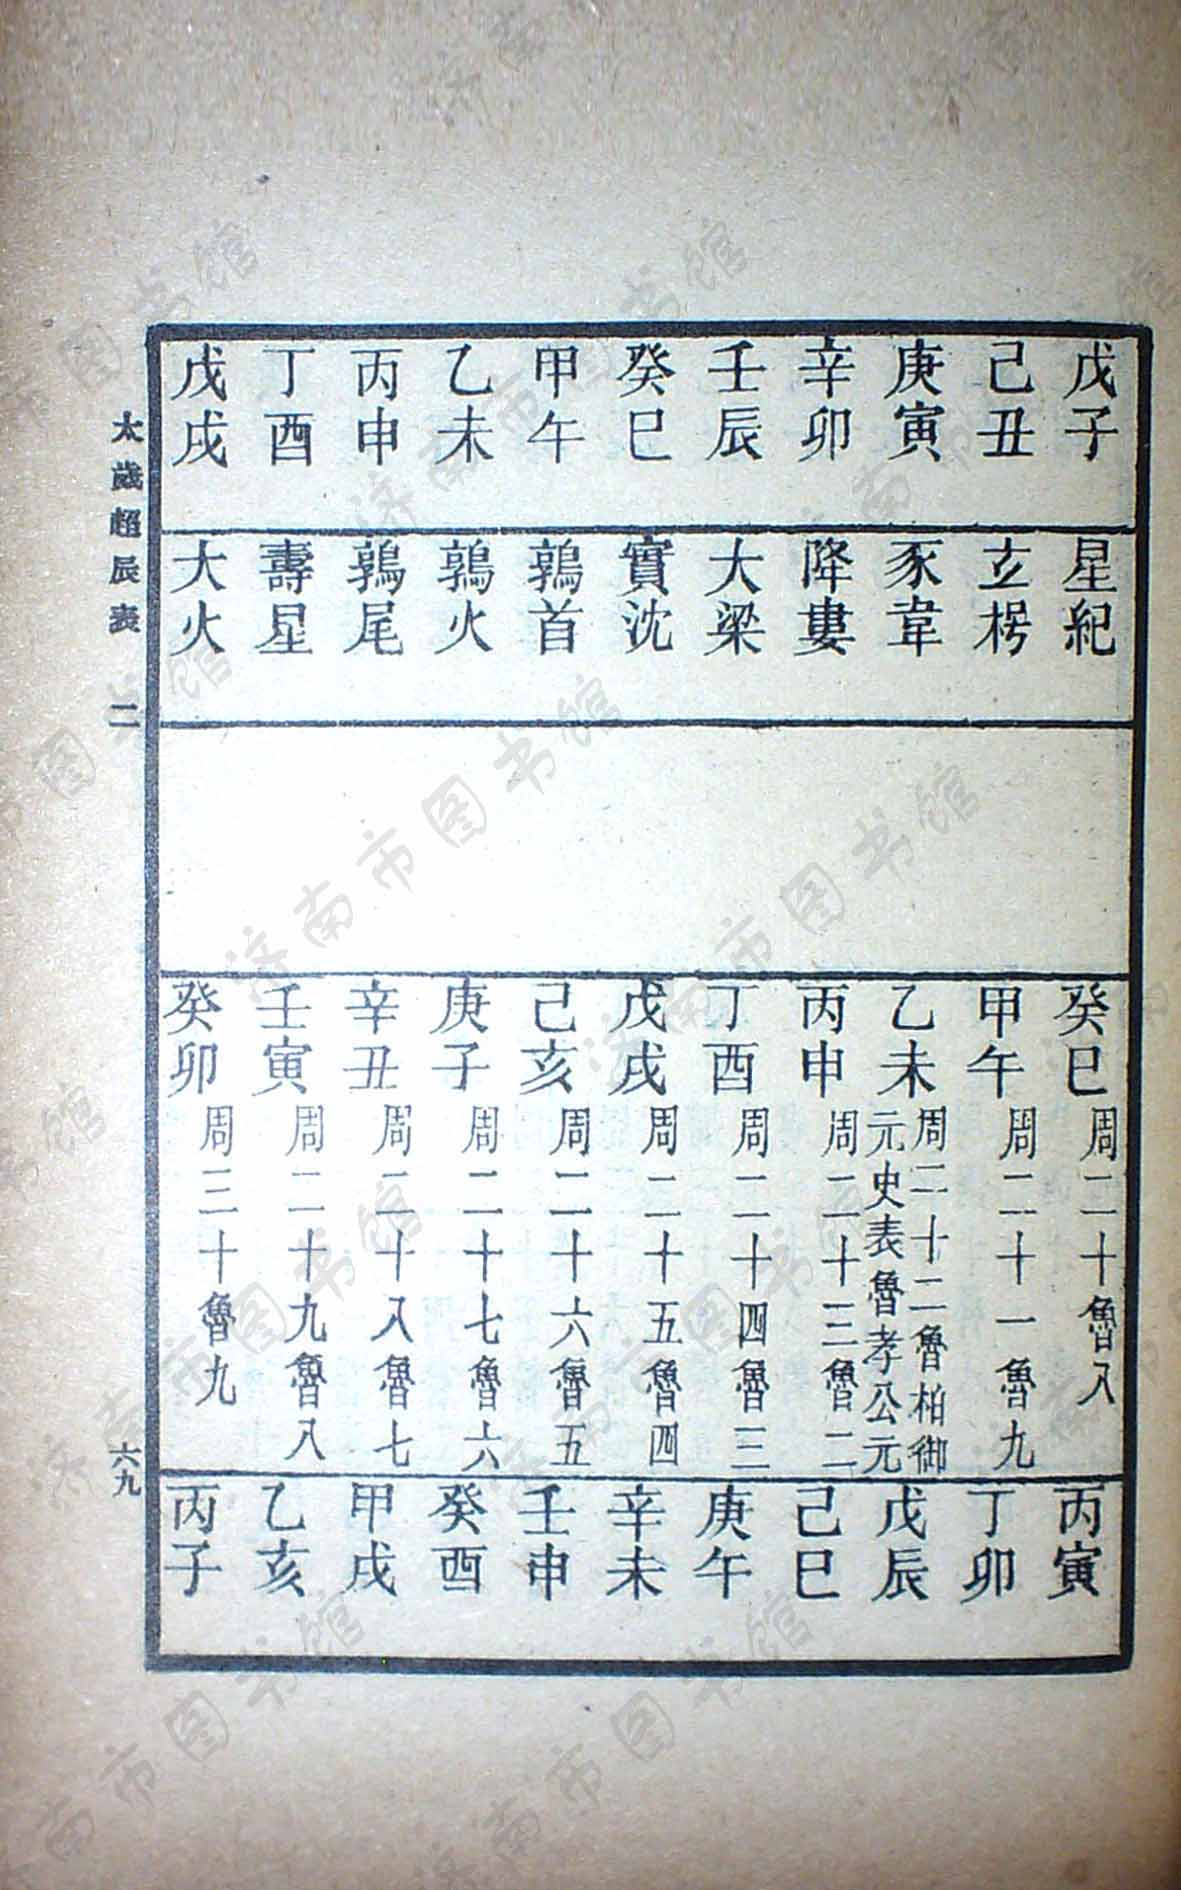 戊子 己丑 庚寅 辛卯 壬辰 癸巳 甲午 乙未 丙申 丁酉 戊戌
星紀 玄枵 豕韋 降婁 大梁 實沈 鶉首 鶉火 鶉尾 壽星 大火
癸巳 周二十魯八
甲午 周二十一魯九
乙未 周二十二魯柏御元史表魯孝公元
丙申 周二十三魯二
丁酉 周二十四魯三
戊戌 周二十五魯四
己亥 周二十六魯五
庚子 周二十七魯六
辛丑 周二十八魯七
壬寅 周二十九魯八
癸卯 周三十魯九
丙寅 丁卯 戊辰 己巳 庚午 辛未 壬申 癸酉 甲戌 乙亥 丙子
太歲超辰表 二
六九
济南市图书馆